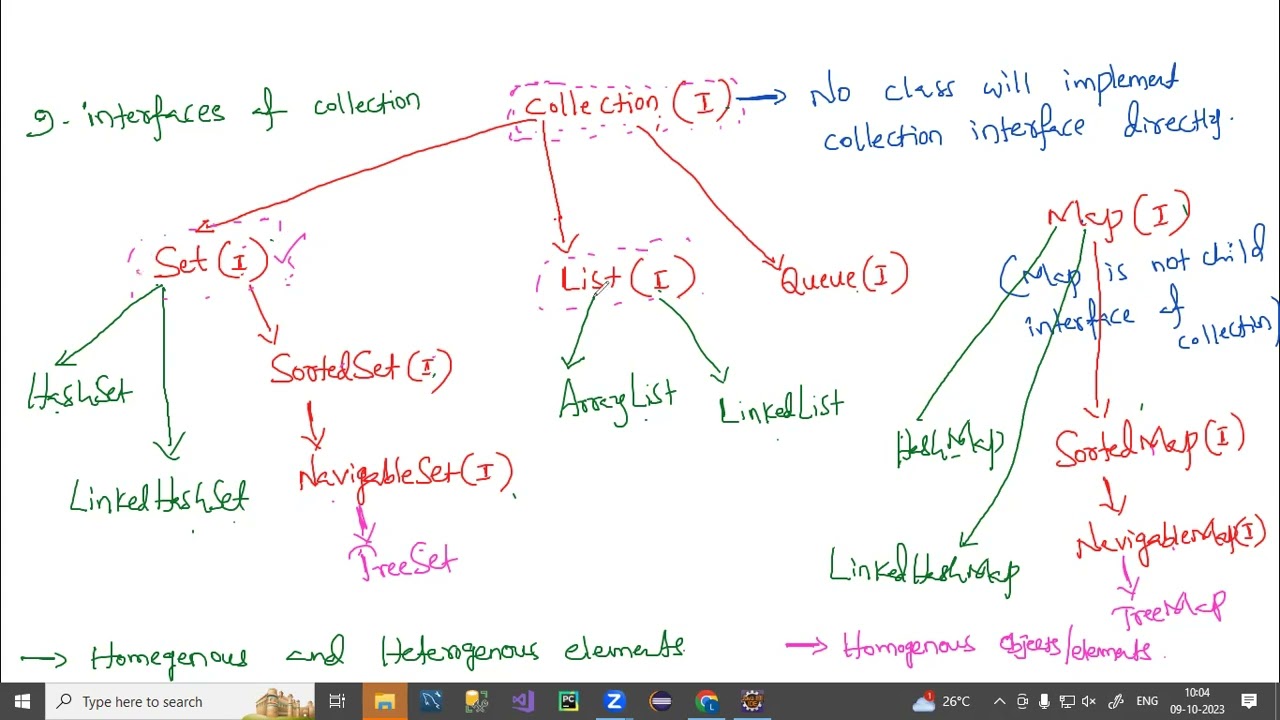 9. interfaces of collection
Collection (I) → No class will implement
collection interface directly.
Map (I)
(Map is not child
interface of
collection)
Set (I) ✓
List (I)
Queue (I)
HashSet
SortedSet (I)
ArrayList
LinkedList
HashMap
SortedMap (I)
LinkedHashSet
NavigableSet (I)
NavigableMap(I)
TreeSet
LinkedHashMap
TreeMap
→ Homegenous and Heterogenous elements
→ Homogenous objects/elements.
Type here to search
1
26°C
ENG
10:04
09-10-2023